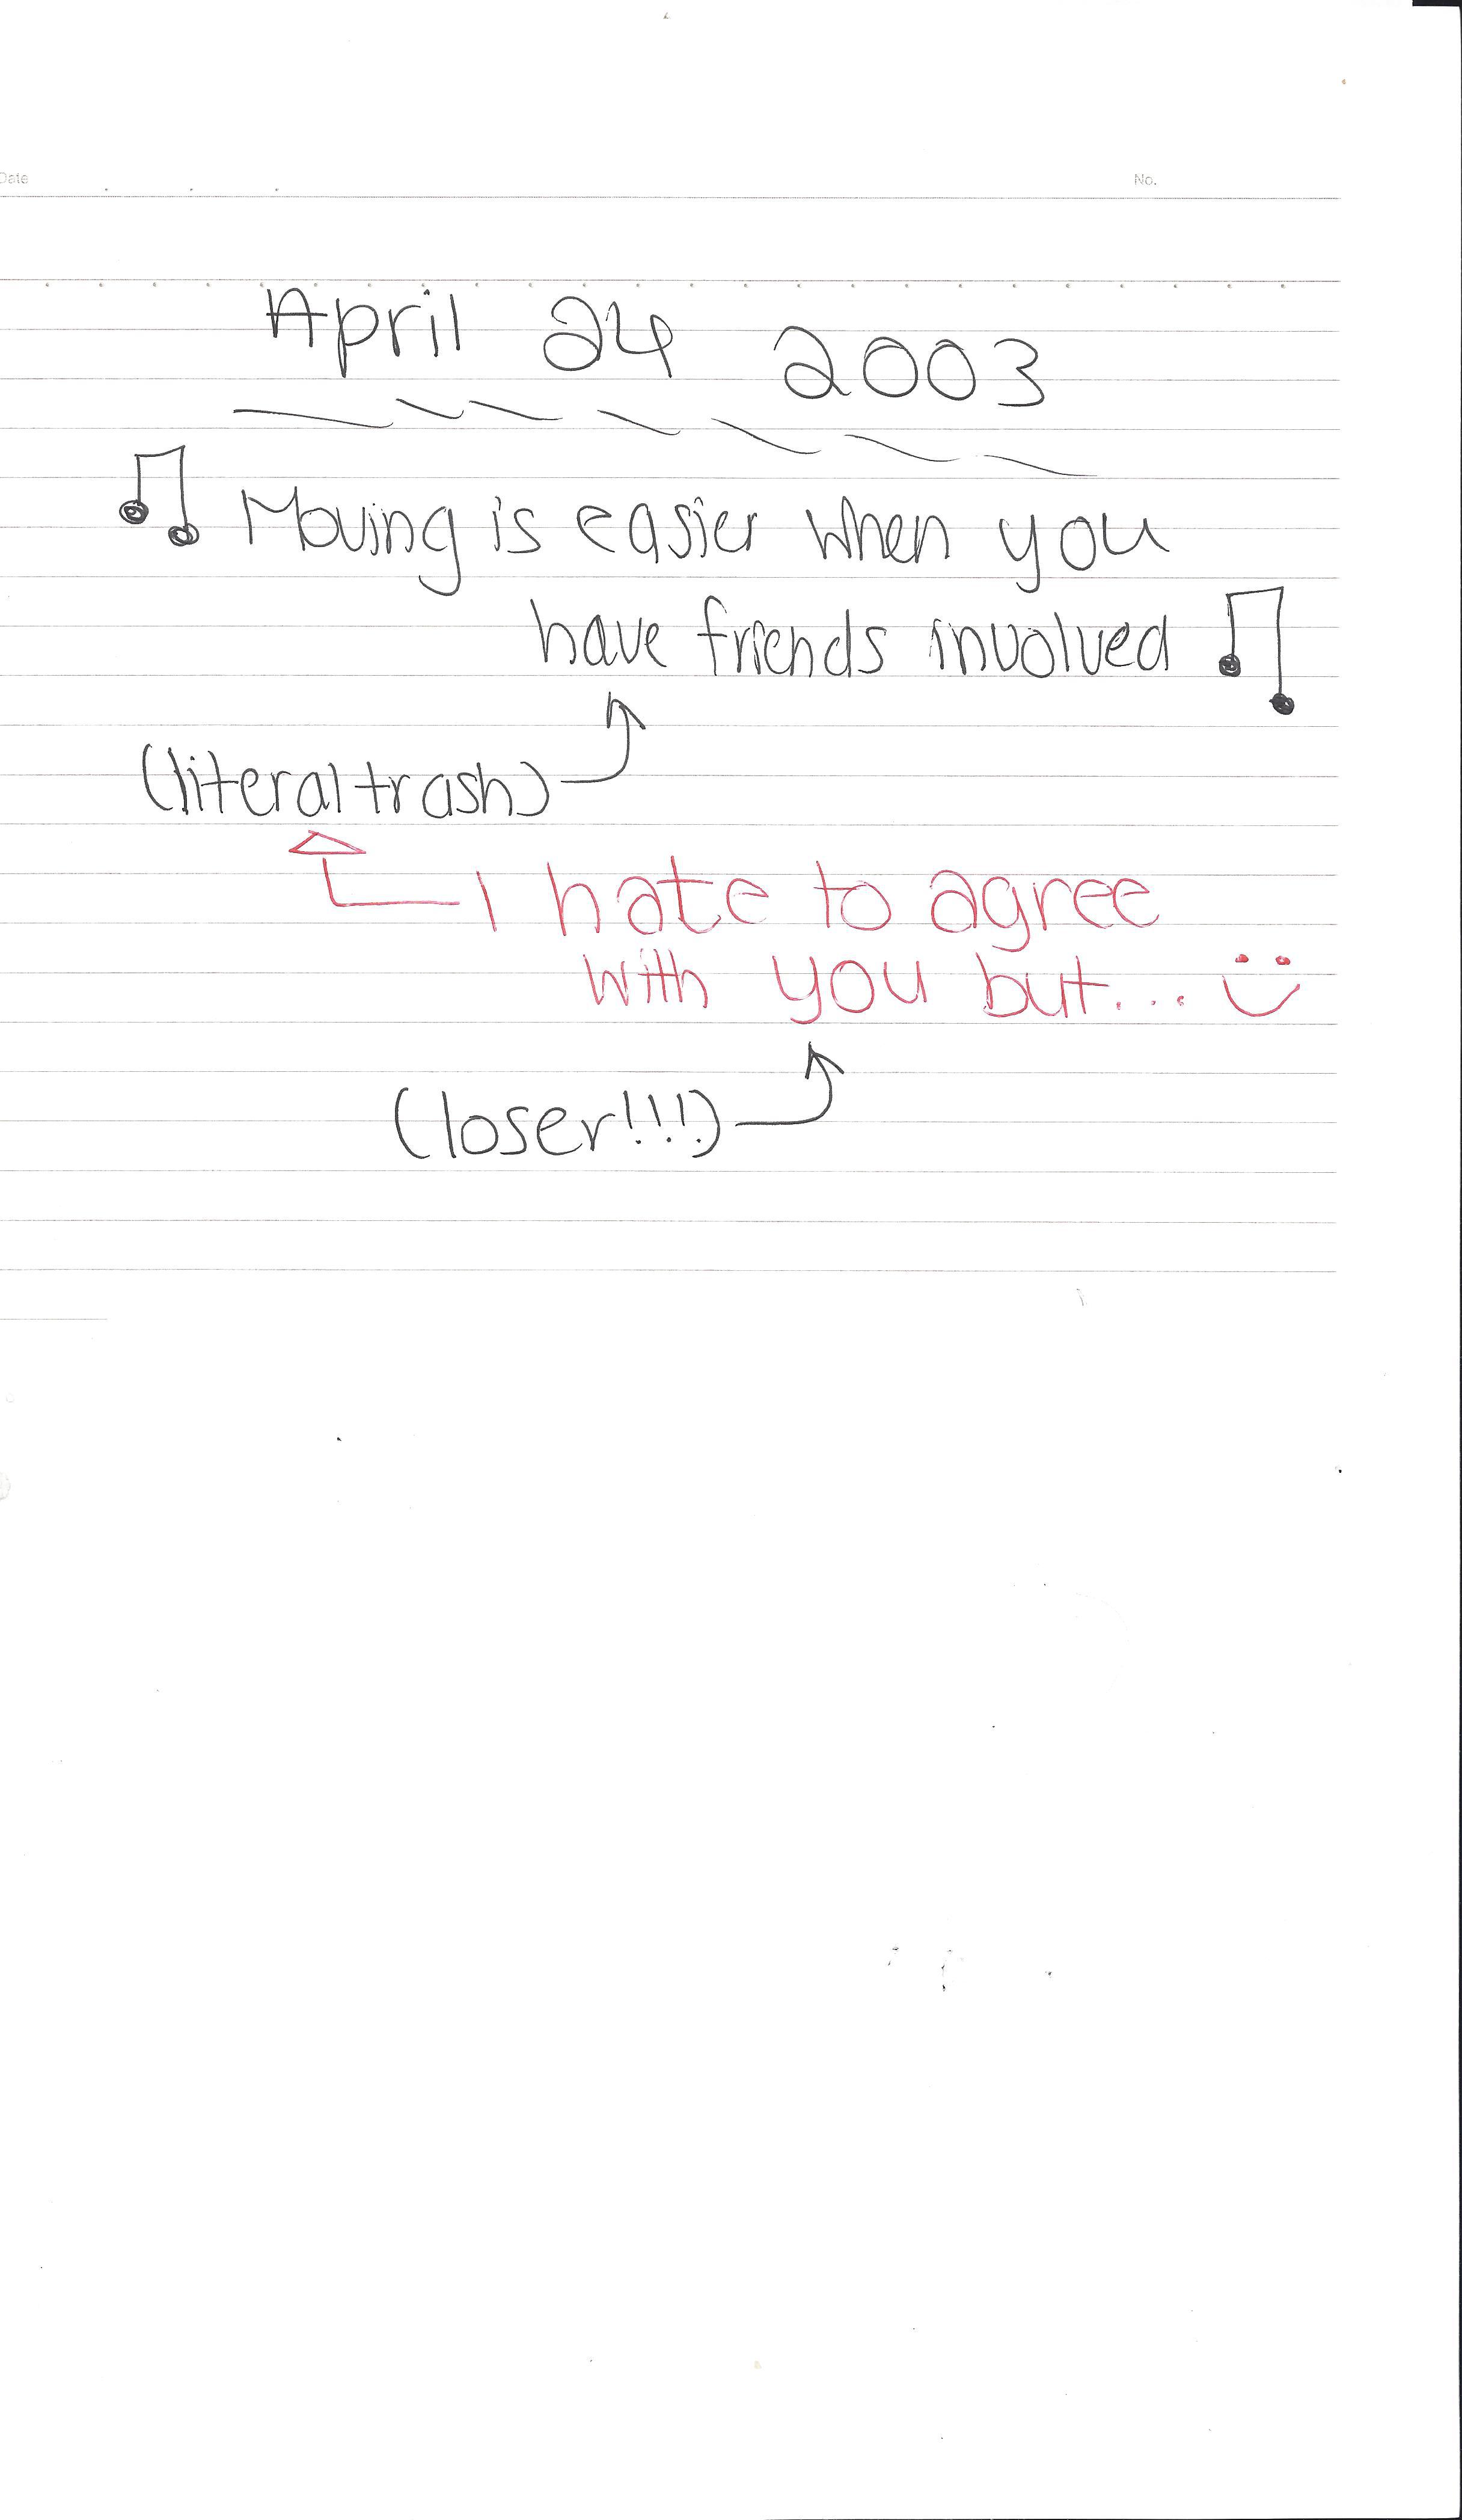 Date No.
April 24 2003
♫ Moving is easier when you
have friends involved ♫
(literal trash)
I hate to agree
with you but... :)
(loser!!!)